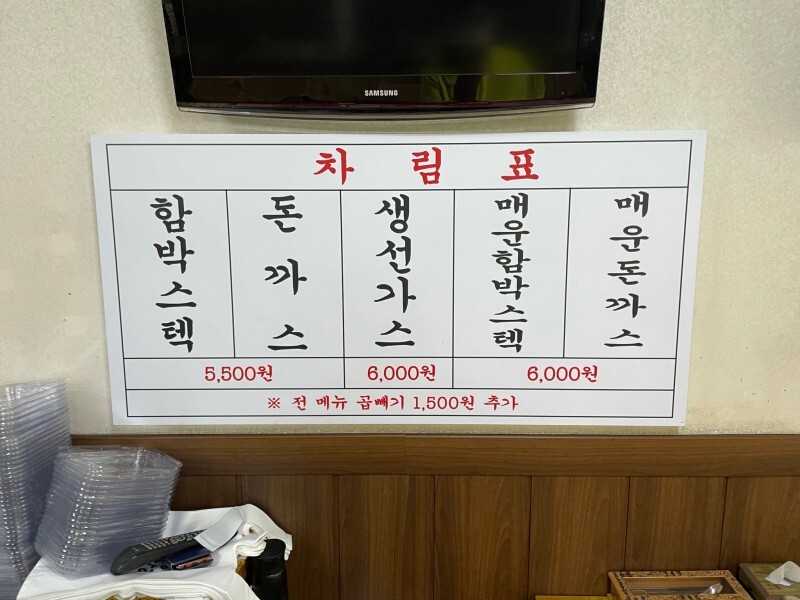 SAMSUNG
차림표
함박스텍
돈까스
생선가스
매운함박스텍
매운돈까스
5,500원
6,000원
6,000원
※ 전 메뉴 곱빼기 1,500원 추가